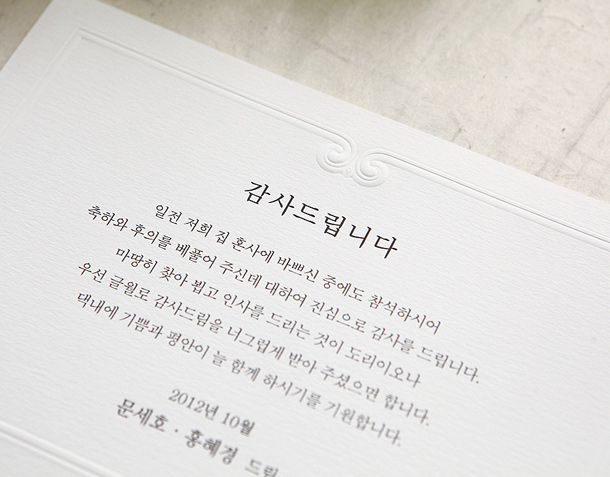 감사드립니다
일전 저희 집 혼사에 바쁘신 중에도 참석하시어
축하와 후의를 베풀어 주신데 대하여 진심으로 감사를 드립니다.
마땅히 찾아 뵙고 인사를 드리는 것이 도리이오나
우선 글월로 감사드림을 너그럽게 받아 주셨으면 합니다.
댁내에 기쁨과 평안이 늘 함께 하시기를 기원합니다.
2012년 10월
문세호 · 홍혜경 드림